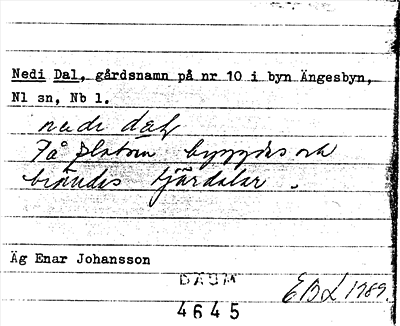 Nedi Dal, gårdsnamn på nr 10 i byn Ängesbyn,
Nl sn, Nb l.
nedi dal
På platsen byggdes och
brändes tjärdalar.
Äg Enar Johansson
DAUM
4645
EBL 1989.